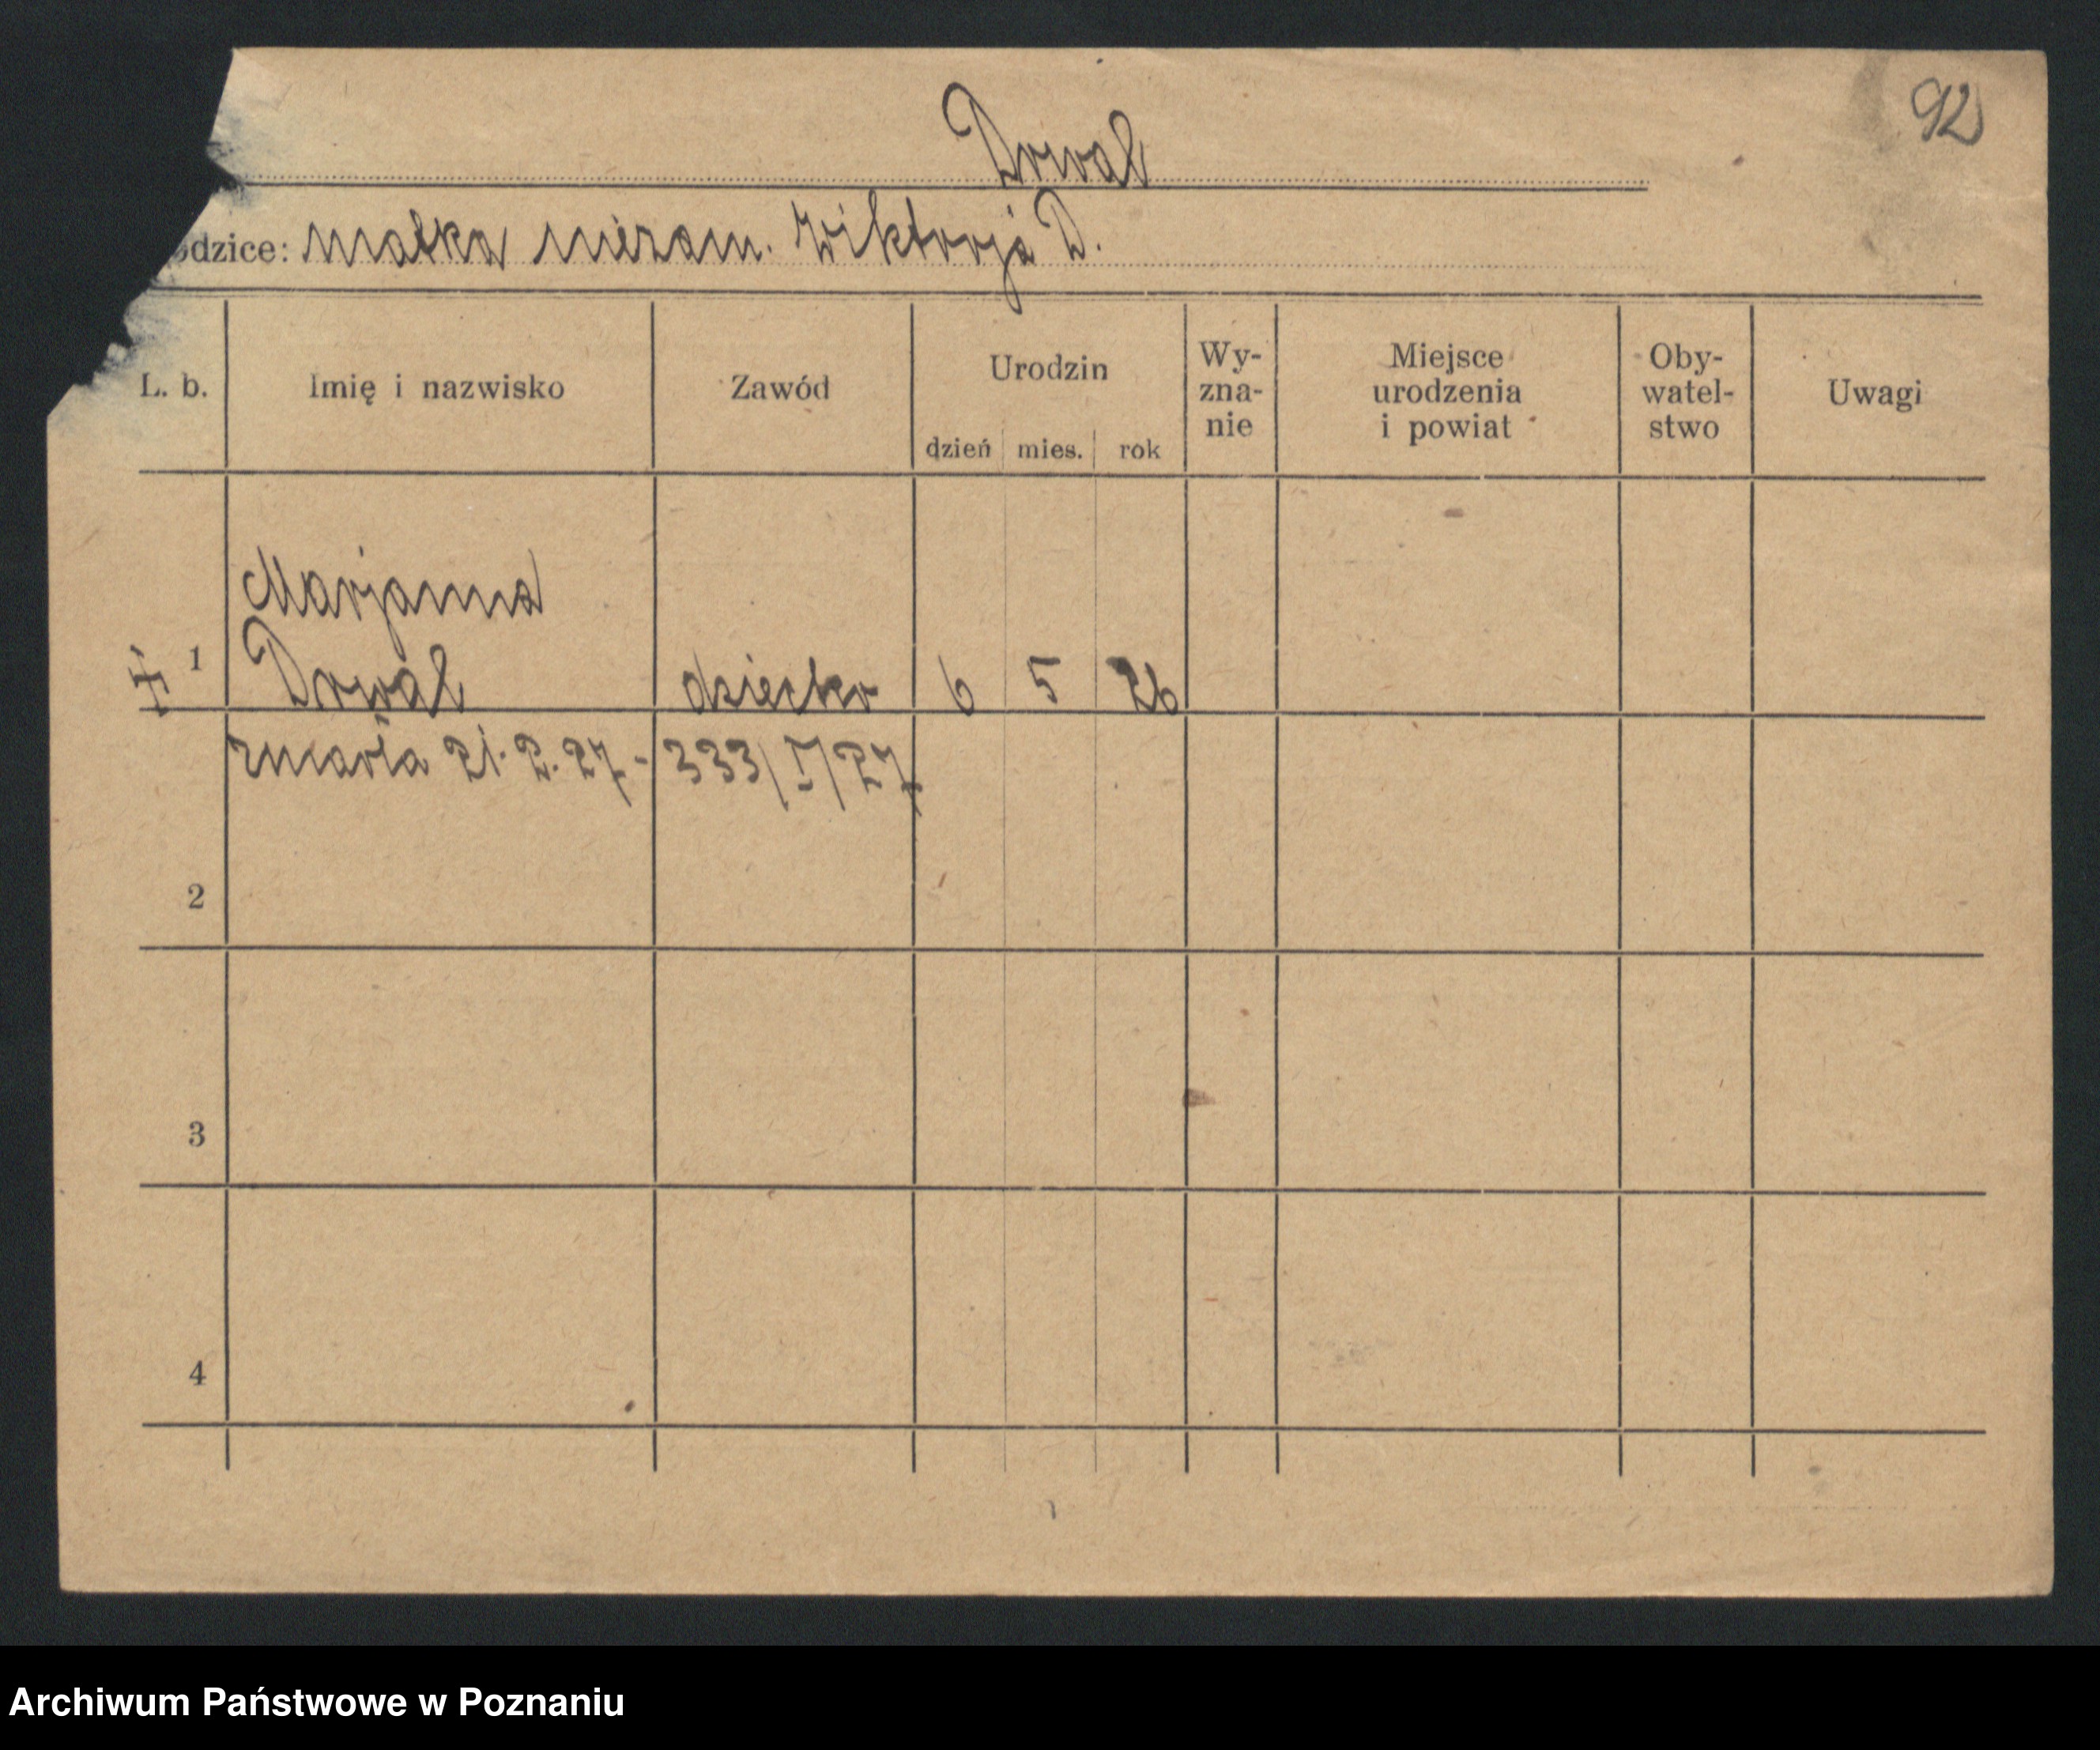 92
Drwal
odzice: matka niezam. Wiktorja D.
L. b. Imię i nazwisko Zawód Urodzin dzień mies. rok Wy-zna-nie Miejsce urodzenia i powiat Oby-watel-stwo Uwagi
Marjanna
1 Drwal dziecko 6 5 26
zmarła 21. 2. 27 - 333/I/27
2
3
4
Archiwum Państwowe w Poznaniu